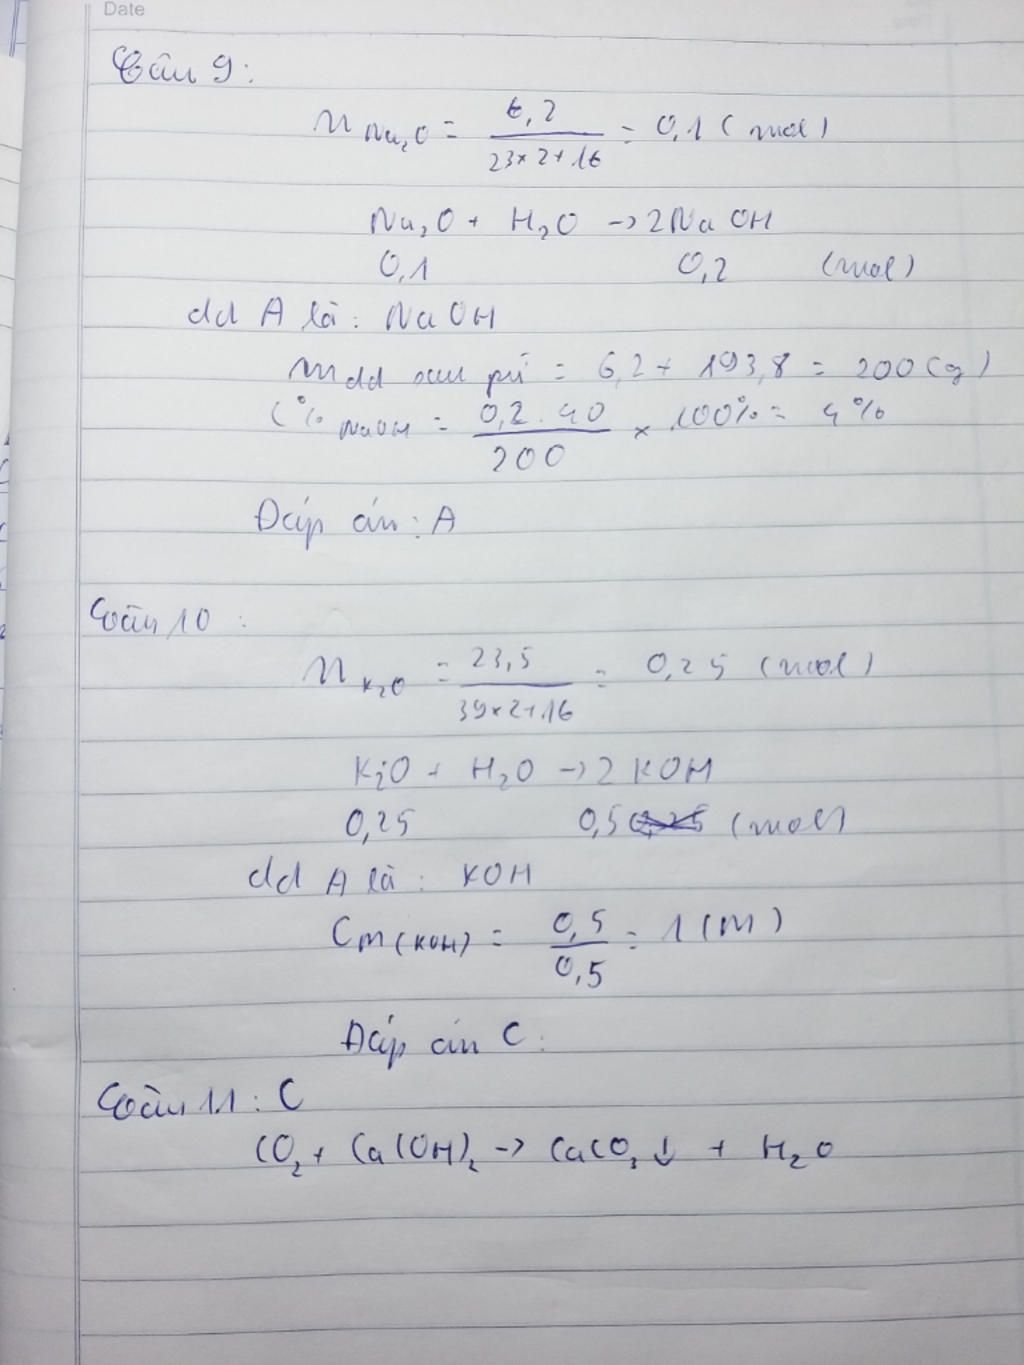 Date
Câu 9:
n Na₂O = 6,2 / 23×2+16 = 0,1 (mol)
Na₂O + H₂O → 2NaOH
0,1 0,2 (mol)
dd A là: NaOH
m dd sau pứ = 6,2 + 193,8 = 200 (g)
C% NaOH = 0,2.40 / 200 × 100% = 4%
Đáp án: A
Câu 10:
n K₂O = 23,5 / 39×2+16 = 0,25 (mol)
K₂O + H₂O → 2KOH
0,25 0,5 (mol)
dd A là: KOH
CM(KOH) = 0,5 / 0,5 = 1 (M)
Đáp án C.
Câu 11: C
CO₂ + Ca(OH)₂ → CaCO₃↓ + H₂O